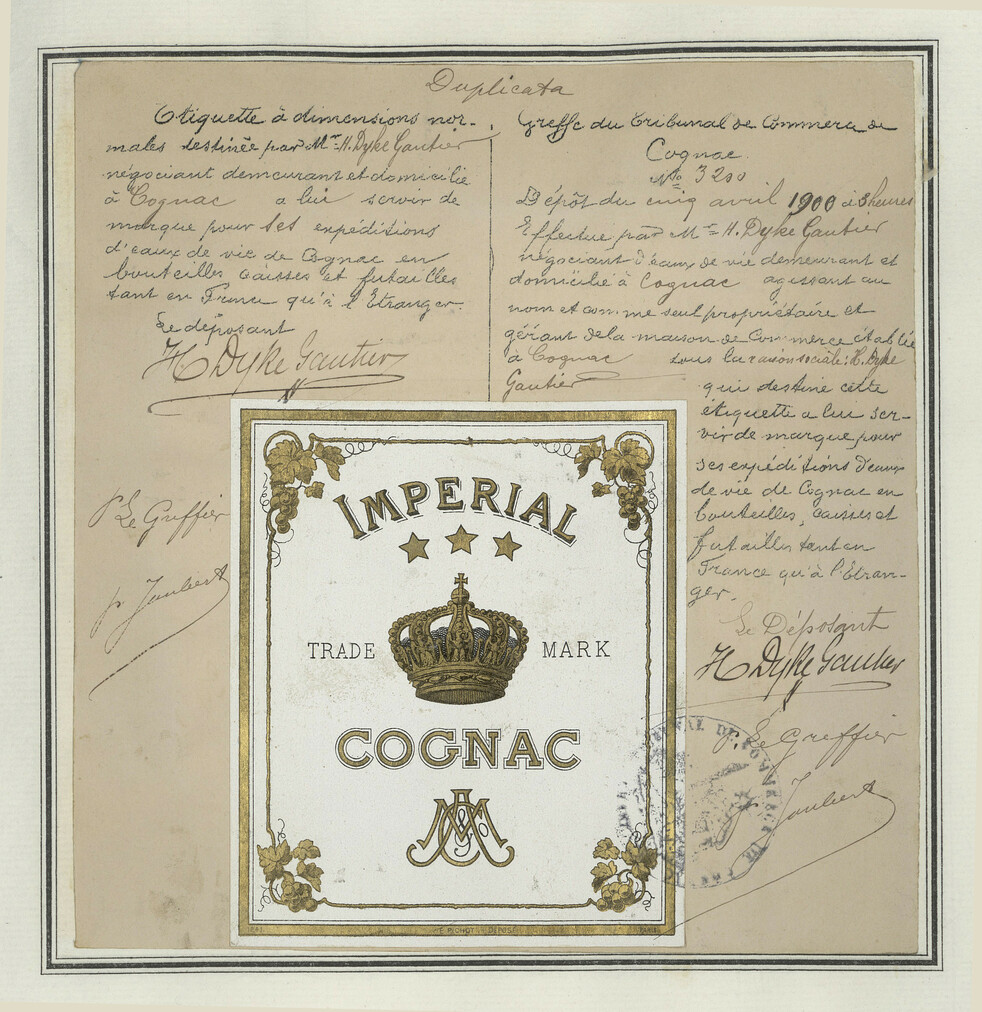 Duplicata
Etiquette à dimensions nor-
males destinée par Mr H. Dyke Gautier
négociant demeurant et domicilié
à Cognac a lui servir de
marque pour ses expéditions
d'eaux de vie de Cognac en
bouteilles caisses et futailles
tant en France qu'à l'Etranger.
Le déposant
H Dyke Gautier
Pr Le Greffier
pr Jaubert
Greffe du Tribunal de Commerce de
Cognac.
No 3200
Dépôt du cinq avril 1900 à 3 heures
Effectué par Mr H. Dyke Gautier
négociant d'eaux de vie demeurant et
domicilié à Cognac agissant au
nom et comme seul propriétaire et
gérant de la maison de Commerce établie
à Cognac sous la raison sociale: H. Dyke
Gautier
qui destine cette
étiquette a lui ser-
vir de marque pour
ses expéditions d'eaux
de vie de Cognac en
bouteilles, caisses et
futailles tant en
France qu'à l'Etran-
ger.
Le Déposant
H Dyke Gautier
p. Le Greffier
Jaubert
IMPERIAL
TRADE MARK
COGNAC
E. PICHOT DEPOSÉ PARIS
TRIBUNAL DE COMMERCE DE